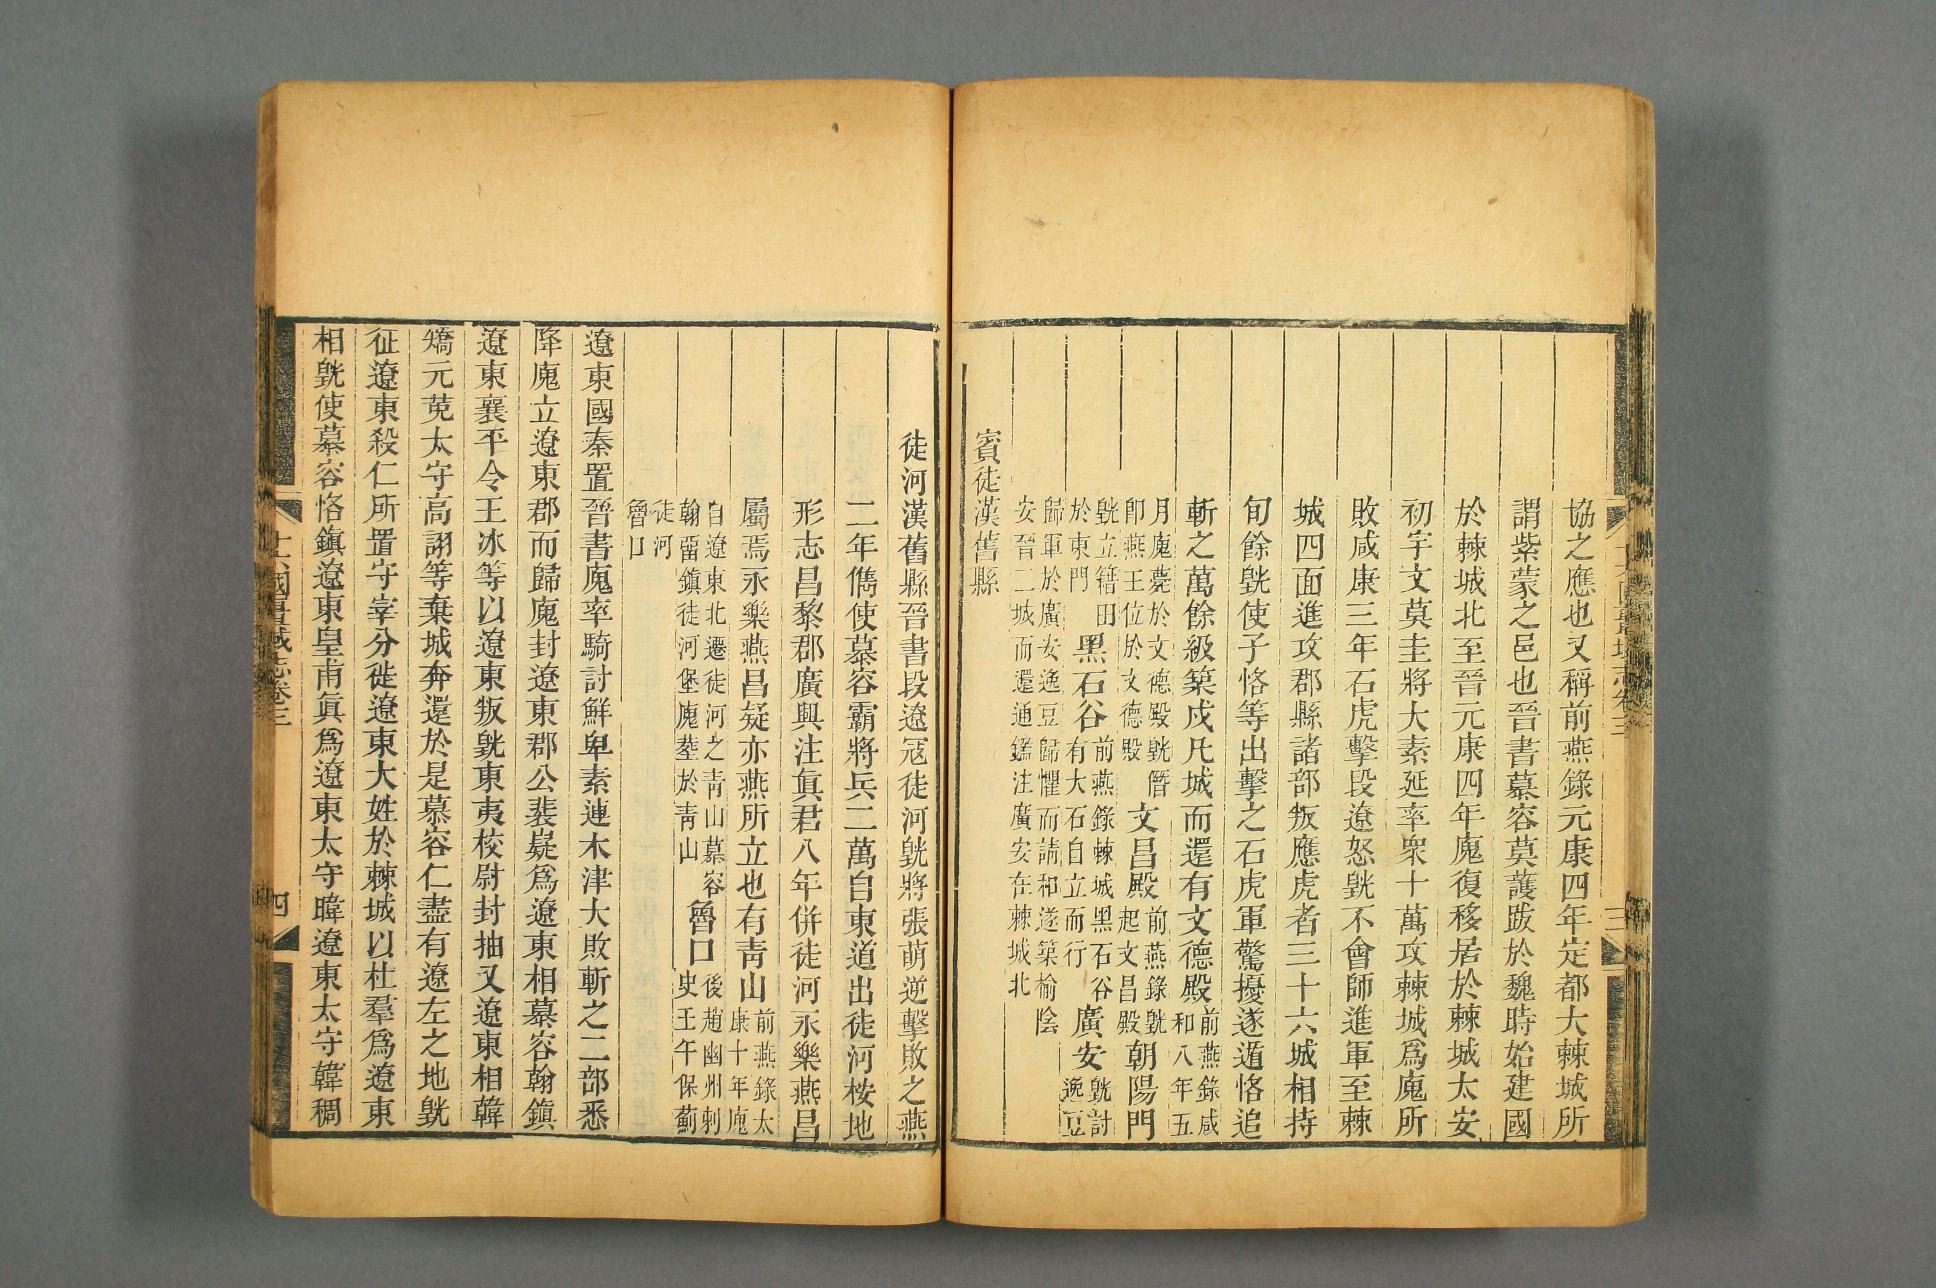 協之應也又稱前燕錄元康四年定都大棘城所
謂紫蒙之邑也晉書慕容莫護跋於魏時始建國
於棘城北至晉元康四年廆復移居於棘城太安
初宇文莫圭將大素延率衆十萬攻棘城爲廆所
敗咸康三年石虎擊段遼怒皝不會師進軍至棘
城四面進攻郡縣諸部叛應虎者三十六城相持
旬餘皝使子恪等出擊之石虎軍驚擾遂遁恪追
斬之萬餘級築戍凡城而還有文德殿前燕錄咸
和八年五
月廆薨於文德殿皝僭
卽燕王位於文德殿
文昌殿前燕錄皝
起文昌殿
朝陽門
皝立籍田
於東門
黑石谷前燕錄棘城黑石谷
有大石自立而行
廣安皝討
逸豆
歸軍於廣安逸豆歸懼而請和遂築榆陰
安晉二城而還通鑑注廣安在棘城北
賓徒漢舊縣
徒河漢舊縣晉書段遼冦徒河皝將張萌逆擊敗之燕
二年儁使慕容霸將兵二萬自東道出徒河桉地
形志昌黎郡廣興注眞君八年併徒河永樂燕昌
屬焉永樂燕昌疑亦燕所立也有靑山前燕錄太
康十年廆
自遼東北遷徒河之靑山慕容
翰留鎭徒河堡廆葬於靑山
魯口後趙幽州刺
史王午保薊
徒河
魯口
遼東國秦置晉書廆率騎討鮮卑素連木津大敗斬之二部悉
降廆立遼東郡而歸廆封遼東郡公裴嶷爲遼東相慕容翰鎭
遼東襄平令王冰等以遼東叛皝東夷校尉封抽又遼東相韓
矯元莬太守高詡等棄城奔還於是慕容仁盡有遼左之地皝
征遼東殺仁所置守宰分徙遼東大姓於棘城以杜羣爲遼東
相皝使慕容恪鎭遼東皇甫眞爲遼東太守暐遼東太守韓稠
十六國疆域志卷三
四